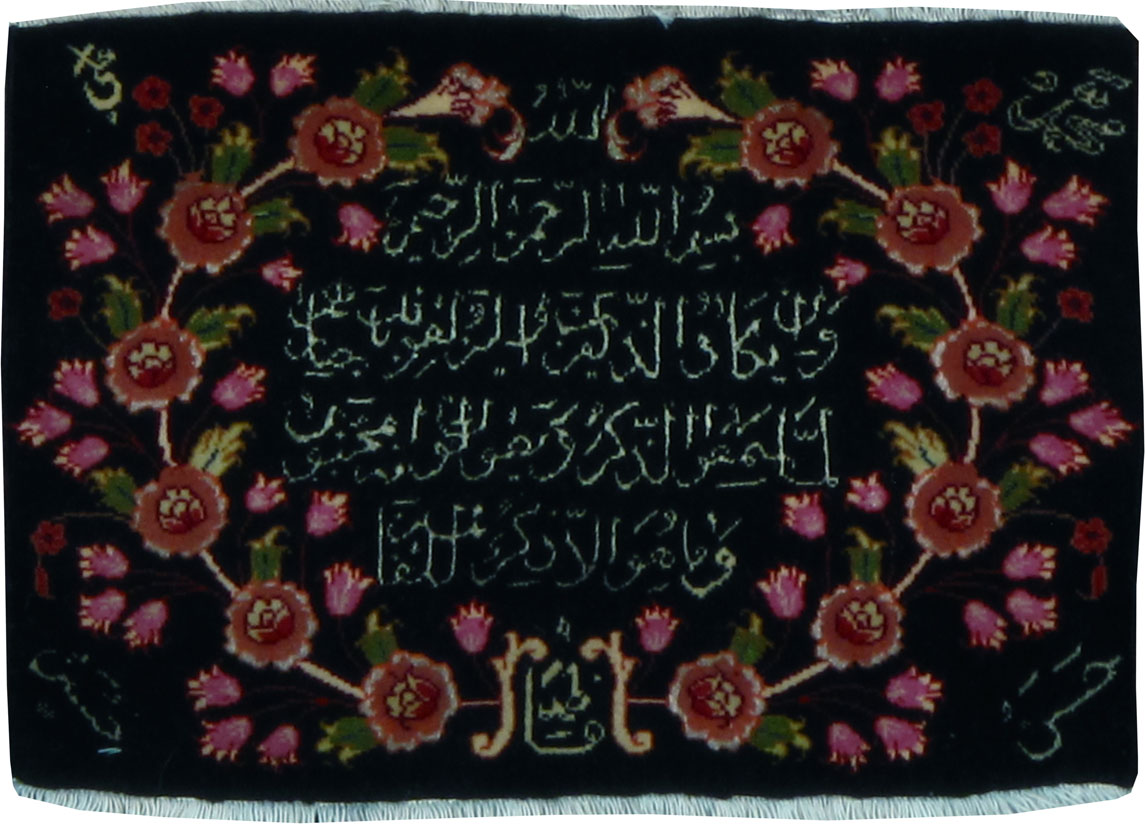 الله
محمد
علی
بسم الله الرحمن الرحیم
وان یکاد الذین کفروا لیزلقونک بابصارهم
لما سمعوا الذکر ویقولون انه لمجنون
وما هو الا ذکر للعالمین
فاطمه
حسن
حسین